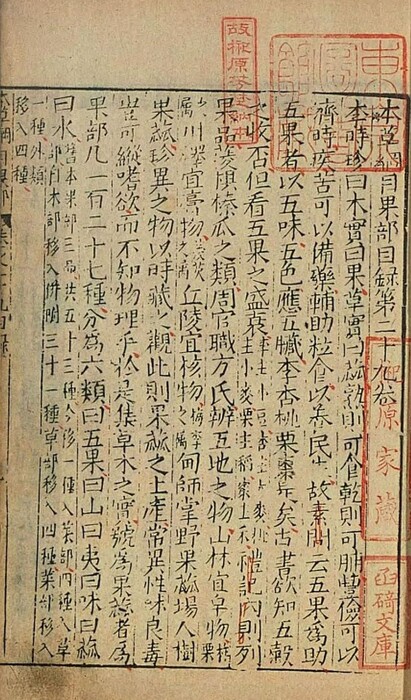 本草綱目果部目錄第二十九卷
李時珍曰木實曰果草實曰蓏熟則可食乾則可脯豐儉可以
濟時疾苦可以備藥輔助粒食以養民生故素問云五果為助
五果者以五味五色應五臟李杏桃栗棗是矣占書欲知五穀
之收否但看五果之盛衰李主小豆杏主大麥桃主小麥栗主稻棗主禾禮記內則列
果品菱榛瓜之類周官職方氏辨五地之物山林宜皁物柞栗
之屬川澤宜膏物菱芡之屬丘陵宜核物梅李之屬甸師掌野果蓏場人樹
果蓏珍異之物以時藏之觀此則果蓏之土產常異性味良毒
豈可縱嗜欲而不知物理乎於是集草木之實號為果蓏者為
果部凡一百二十七種分為六類曰五果曰山曰夷曰味曰蓏
曰水舊本果部三品共五十三種今移一種入菜部四種入草部自木部移入併附三十一種草部移入四種菜部移入
一種外類移入四種
故榊原芳埜納本
榊原家藏
函碕文庫